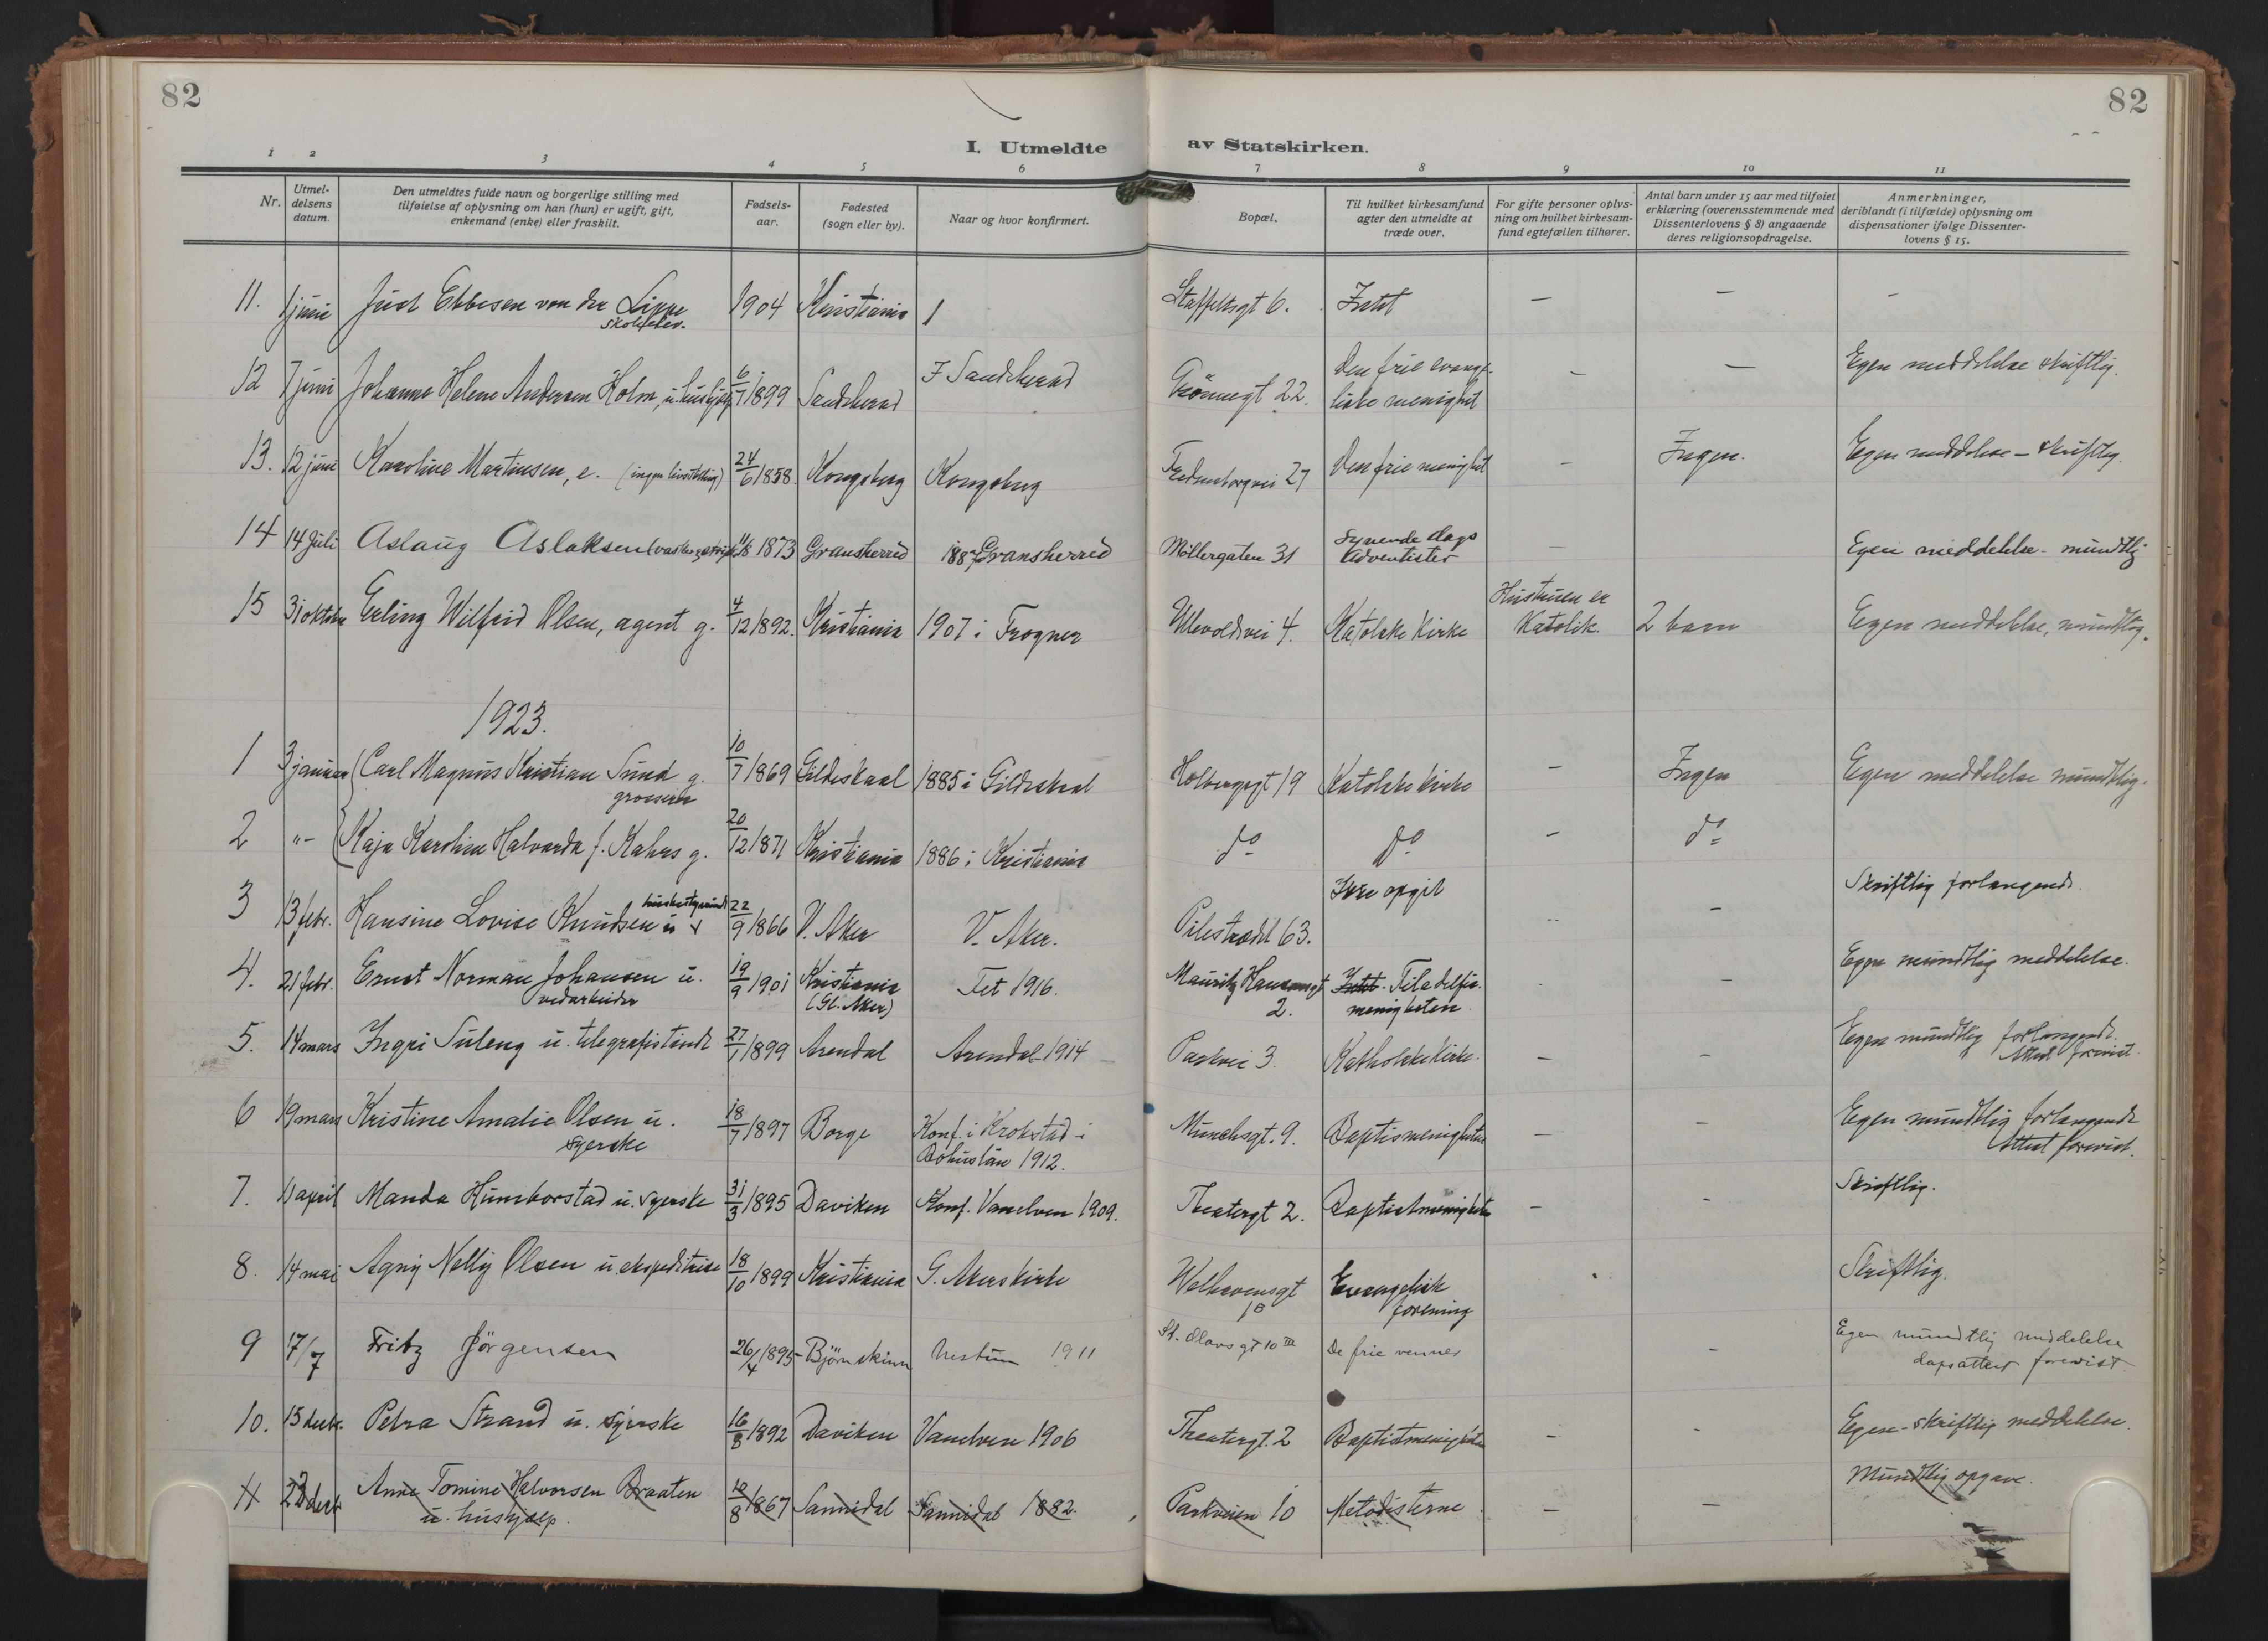 82
82
I. Utmeldte av Statskirken.
1 2 3 4 5 6 7 8 9 10 11
Nr.
Utmel-
delsens
datum.
Den utmeldtes fulde navn og borgerlige stilling med
tilføielse af oplysning om han (hun) er ugift, gift,
enkemand (enke) eller fraskilt.
Fødsels-
aar.
Fødested
(sogn eller by).
Naar og hvor konfirmert.
Bopæl.
Til hvilket kirkesamfund
agter den utmeldte at
træde over.
For gifte personer oplys-
ning om hvilket kirkesam-
fund egtefællen tilhører.
Antal barn under 15 aar med tilføiet
erklæring (overensstemmende med
Dissenterlovens § 8) angaaende
deres religionsopdragelse.
Anmerkninger,
deriblandt (i tilfælde) oplysning om
dispensationer ifølge Dissenter-
lovens § 15.
11. 1 juni Just Ebbesen von der Lippe 1904 Kristiania Staffeltsgt 6. Intet — — -
skoleelev.
12 7 juni Johanne Helene Andersen Holm, u. hushjelp 6/7 1899 Sandeherad I Sandeherad Grönnegt 22. Den frie evange- — — Egen meddelelse skriftlig.
liske menighet
13. 12 juni Karoline Martinsen, e. (ingen livsstilling) 24/6 1858. Kongsberg Kongsberg Fredensborgvei 27 Den frie menighet — Ingen. Egen meddelse — skriftlig.
14 14 Juli Aslaug Aslaksen 11/8 1873 Gransherred Gransherred Møllergaten 31 Syvende dags — Egen meddelelse - mundtlig
Adventister
15 31 oktober Erling Wilfrid Olsen, agent g. 4/12 1892. Kristiania 1907 i Frogner Ullevoldsvei 4. Katolske Kirke Hustruen er 2 barn Egen meddelelse, mundtlig.
Katolik.
1923.
1 3 januar Carl Magnus Kristian Sund g. 10/7 1869 Gildeskaal 1885 i Gildeskaal Holbergsgt 19 Katolske kirke — Ingen Egen meddelelse mundtlig.
grosserer
2 "- Kaja Karoline Halvarda f. Kahrs g. 20/12 1871 Kristiania 1886 i Kristiania do do — do
3 13 febr. Hansine Lovise Knudsen u husbestyrerinde 22/9 1866 V. Aker V. Aker. Pilestrædet 63. Ikke opgit - — Skriftlig forlangende.
4. 21 febr. Ernst Norman Johansen u. 19/9 1901 Kristiania Fet 1916. Mauritz Hansensgt Intet. Filadelfia- - Egen mundtlig meddelelse.
vedarbeider (Gl. Aker) 2. menigheten
5. 14 mars Ingri Suleng u. telegrafistinde 27/1 1899 Arendal Arendal 1914 Parkvei 3. Katholske Kirke. — - Egen mundtlig forlangende.
Attest forevist.
6 19 mars Kristine Amalie Olsen u. 18/7 1897 Borge Konf. i Krokstad i Munchsgt. 9. Baptismenigheten — - Egen mundtlig forlangende
syerske Bohuslän 1912. Attest forevist.
7. 11 april Manda Humborstad u. syerske 31/3 1895 Daviken Konf. Vanelven 1909. Theatergt 2. Baptistmenigheten — - Skriftlig.
8. 14 mai Agny Nelly Olsen u. ekspeditrise 18/10 1899 Kristiania G. Akers kirke Welhavensgt Evangelisk Skriftlig.
1B forening
9 17/7 Fritz Jörgensen 26/4 1895 Björnskinn 1911 St. Olavs gt 10 III De frie venner - Egen mundtlig meddelelse
dapsattest forevist
10. 15 decbr. Petra Strand u. syerske 16/8 1892 Daviken Vanelven 1906 Theatergt. 2 Baptistmenigheten — - Egen - skriftlig meddelelse.
11 22 decbr Anne Tomine Halvorsen Braaten 10/8 1867 Sannidal Sannidal 1882. Parkveien 10 Metodisterne — — Mundtlig opgave.
u. hushjælp.